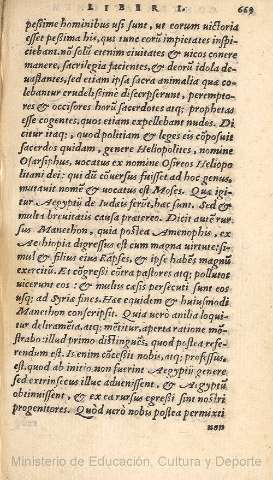 LIBER I. 669
pessime hominibus usi sunt, ut eorum victoria
esset pessima his, qui tunc eorũ impietates inspi-
ciebant. nõ solũ etenim civitates & vicos concre
mavere, sacrilegia facientes, & deorũ idola de-
vastantes, sed etiam ipsa sacra animalia quæ co-
lebantur crudelissime discerpserunt, perempto-
res & occisores horũ sacerdotes atq; prophetas
esse cogentes, quos etiam expellebant nudos. Di
citur itaq;, quod politiam & leges eis cõposuit
sacerdos quidam, genere Heliopolites, nomine
Osarsiphus, vocatus ex nomine Osireos Heliopo
litani dei: qui dũ cõversus fuisset ad hoc genus,
mutavit nomẽ & vocatus est Moses. Quæ igi-
tur Aegyptii de Iudæis ferũt, hæc sunt. Sed &
multa brevitatis causa prætereo. Dicit autẽ rur
sus Manethon, quia postea Amenophis, ex
Aethiopia digressus est cum magna virtute: si-
mul & filius eius Rapses, & ipse habẽs magnũ
exercitũ. Et cõgressi cõtra pastores atq; pollutos
vicerunt eos: & multis cæsis persecuti sunt eos
usq; ad Syriæ fines. Hæc equidem & huiusmodi
Manethon conscripsit. Quia verò anilia loqui
tur deliramẽta, atq; mẽtitur, aperta ratione mõ-
strabo: illud primo distinguẽs, quod postea refe-
rendum est. Is enim cõcessit nobis, atq; professus
est, quod ab initio non fuerint Aegyptii genere
sed extrinsecus illuc advenissent, & Aegyptũ
obtinuissent, & ex ea rursus egressi sint nostri
progenitores. Quòd verò nobis postea permixti
non
Ministerio de Educación, Cultura y Deporte